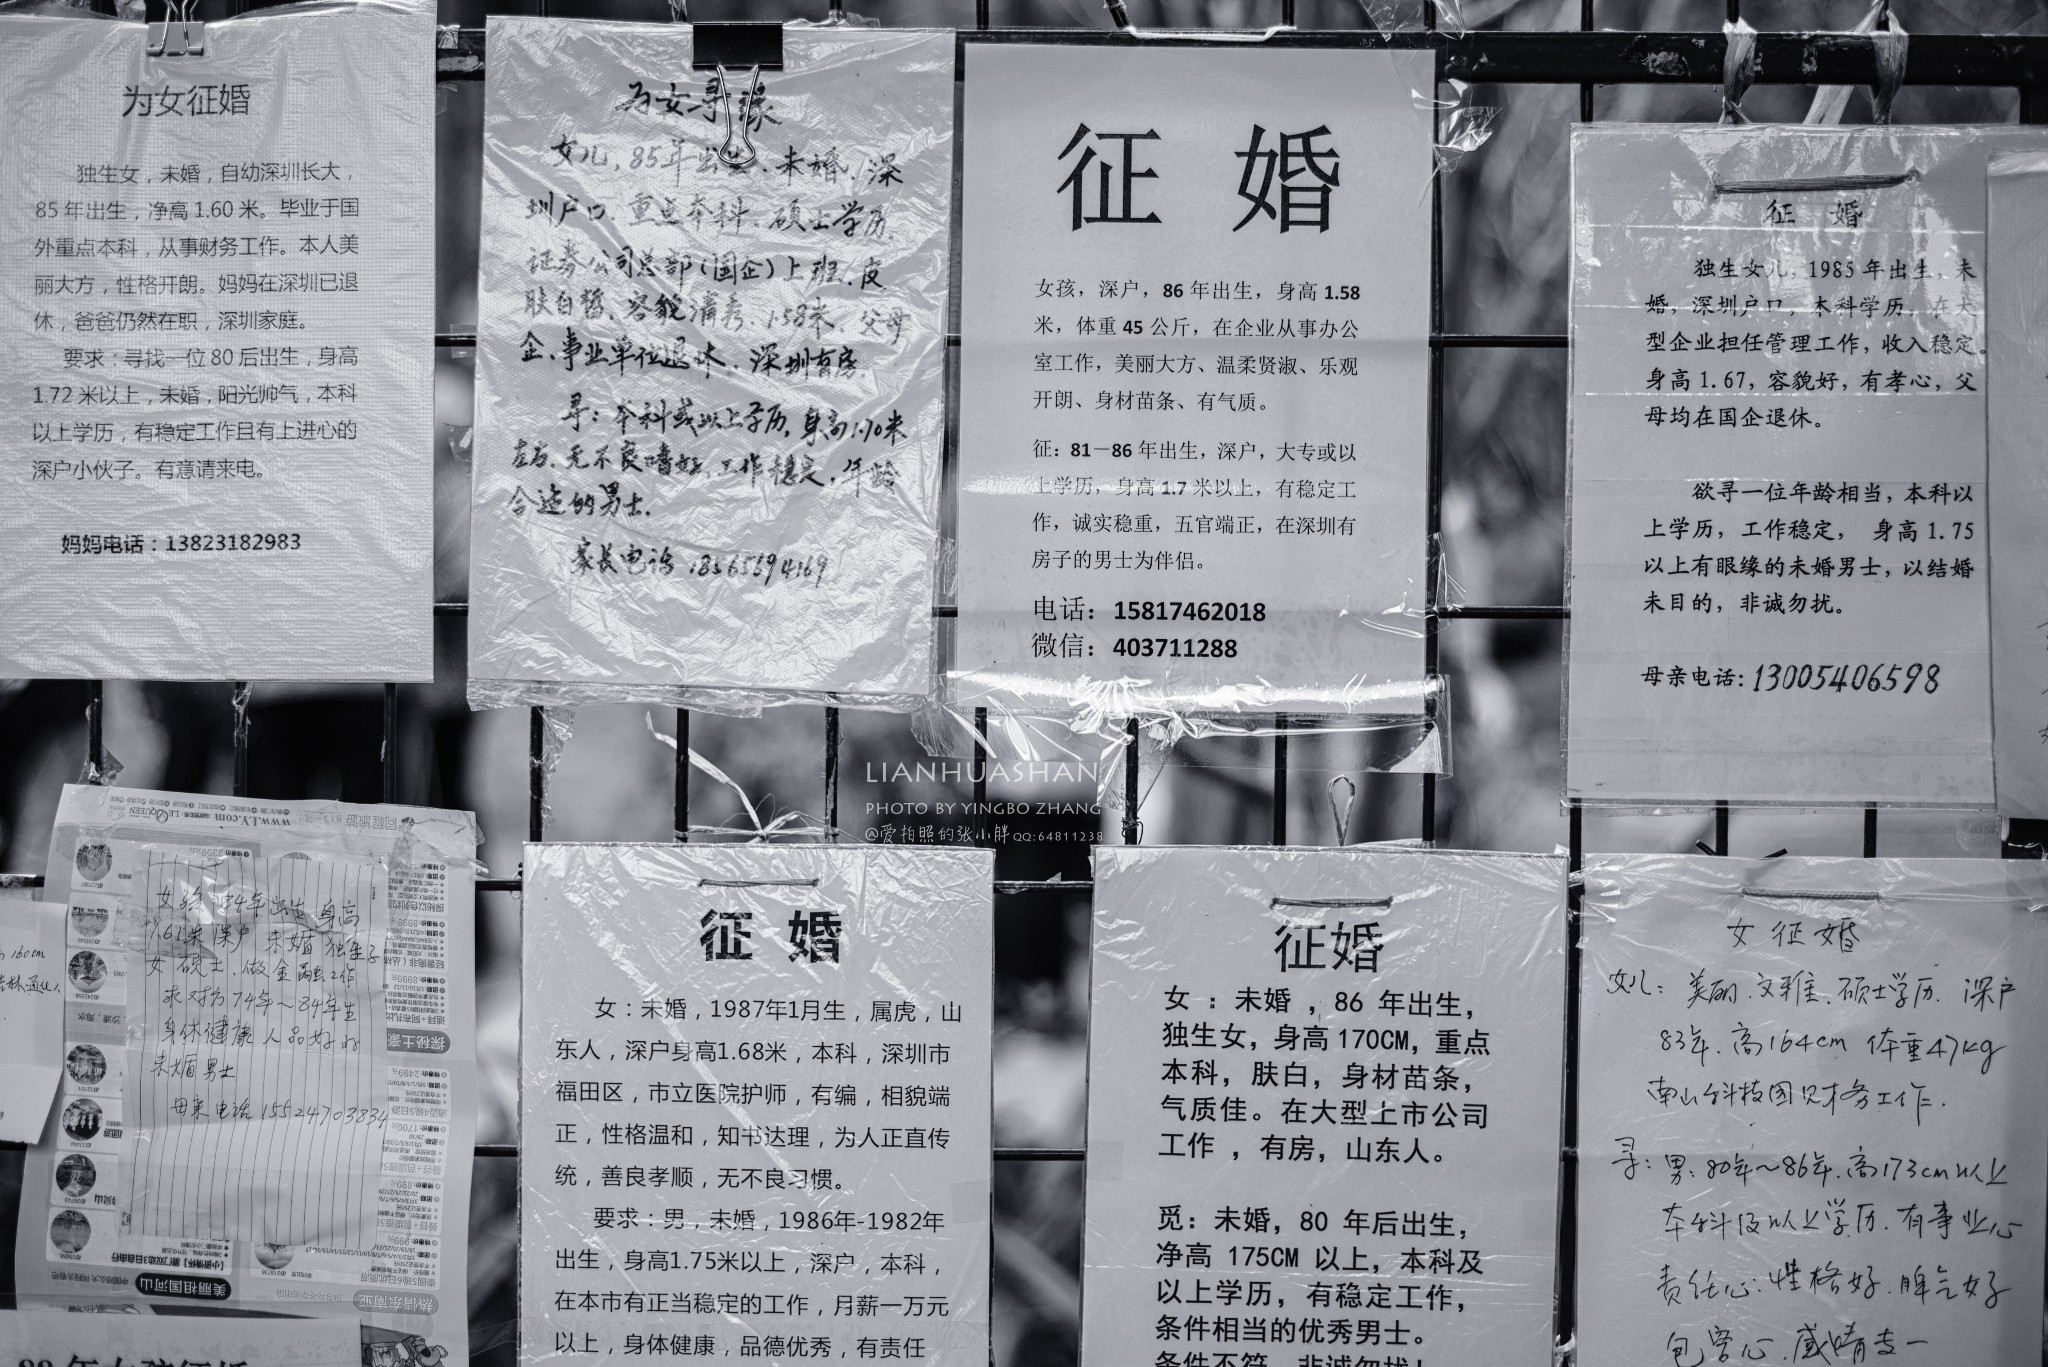 为女征婚
独生女，未婚，自幼深圳长大，
85年出生，净高1.60米。毕业于国
外重点本科，从事财务工作。本人美
丽大方，性格开朗。妈妈在深圳已退
休，爸爸仍然在职，深圳家庭。
要求：寻找一位80后出生，身高
1.72米以上，未婚，阳光帅气，本科
以上学历，有稳定工作且有上进心的
深户小伙子。有意请来电。
妈妈电话：13823182983
为女寻缘
女儿，85年出生、未婚、深
圳户口、重点本科、硕士学历、
证券公司总部（国企）上班、皮
肤白皙、容貌清秀、1.58米、父母
企、事业单位退休、深圳有房。
寻：本科或以上学历，身高1.70米
左右、无不良嗜好、工作稳定、年龄
合适的男士.
家长电话 18565694169
征 婚
女孩，深户，86年出生，身高1.58
米，体重45公斤，在企业从事办公
室工作，美丽大方、温柔贤淑、乐观
开朗、身材苗条、有气质。
征：81－86年出生，深户，大专或以
上学历，身高1.7米以上，有稳定工
作，诚实稳重，五官端正，在深圳有
房子的男士为伴侣。
电话：15817462018
微信：403711288
征 婚
独生女儿，1985年出生，未
婚，深圳户口，本科学历，在大
型企业担任管理工作，收入稳定。
身高1.67，容貌好，有孝心，父
母均在国企退休。
欲寻一位年龄相当，本科以
上学历，工作稳定， 身高1.75
以上有眼缘的未婚男士，以结婚
未目的，非诚勿扰。
母亲电话：13005406598
LIANHUASHAN
PHOTO BY YINGBO ZHANG
@爱拍照的张小胖QQ:64811238
女孩 84年出生 身高
1.61米 深户 未婚 独生子
女 硕士．做金融工作
求对方74年～84年生
身体健康 人品好的
未婚男士
母亲电话 15524703834
征 婚
女：未婚，1987年1月生，属虎，山
东人，深户身高1.68米，本科，深圳市
福田区，市立医院护师，有编，相貌端
正，性格温和，知书达理，为人正直传
统，善良孝顺，无不良习惯。
要求：男，未婚，1986年-1982年
出生，身高1.75米以上，深户，本科，
在本市有正当稳定的工作，月薪一万元
以上，身体健康，品德优秀，有责任
征婚
女 ：未婚 ，86 年出生，
独生女，身高170CM，重点
本科，肤白，身材苗条，
气质佳。在大型上市公司
工作 ，有房，山东人。
觅：未婚，80 年后出生，
净高 175CM 以上，本科及
以上学历，有稳定工作，
条件相当的优秀男士。
条件不符，非诚勿扰！
女 征 婚
女儿：美丽．文雅．硕士学历．深户
83年．高164cm 体重47kg
南山科技园财务工作．
寻：男：80年～86年．高173cm以上
本科及以上学历．有事业心
责任心：性格好．脾气好
包容心．
www.LY.com
美丽祖国河山